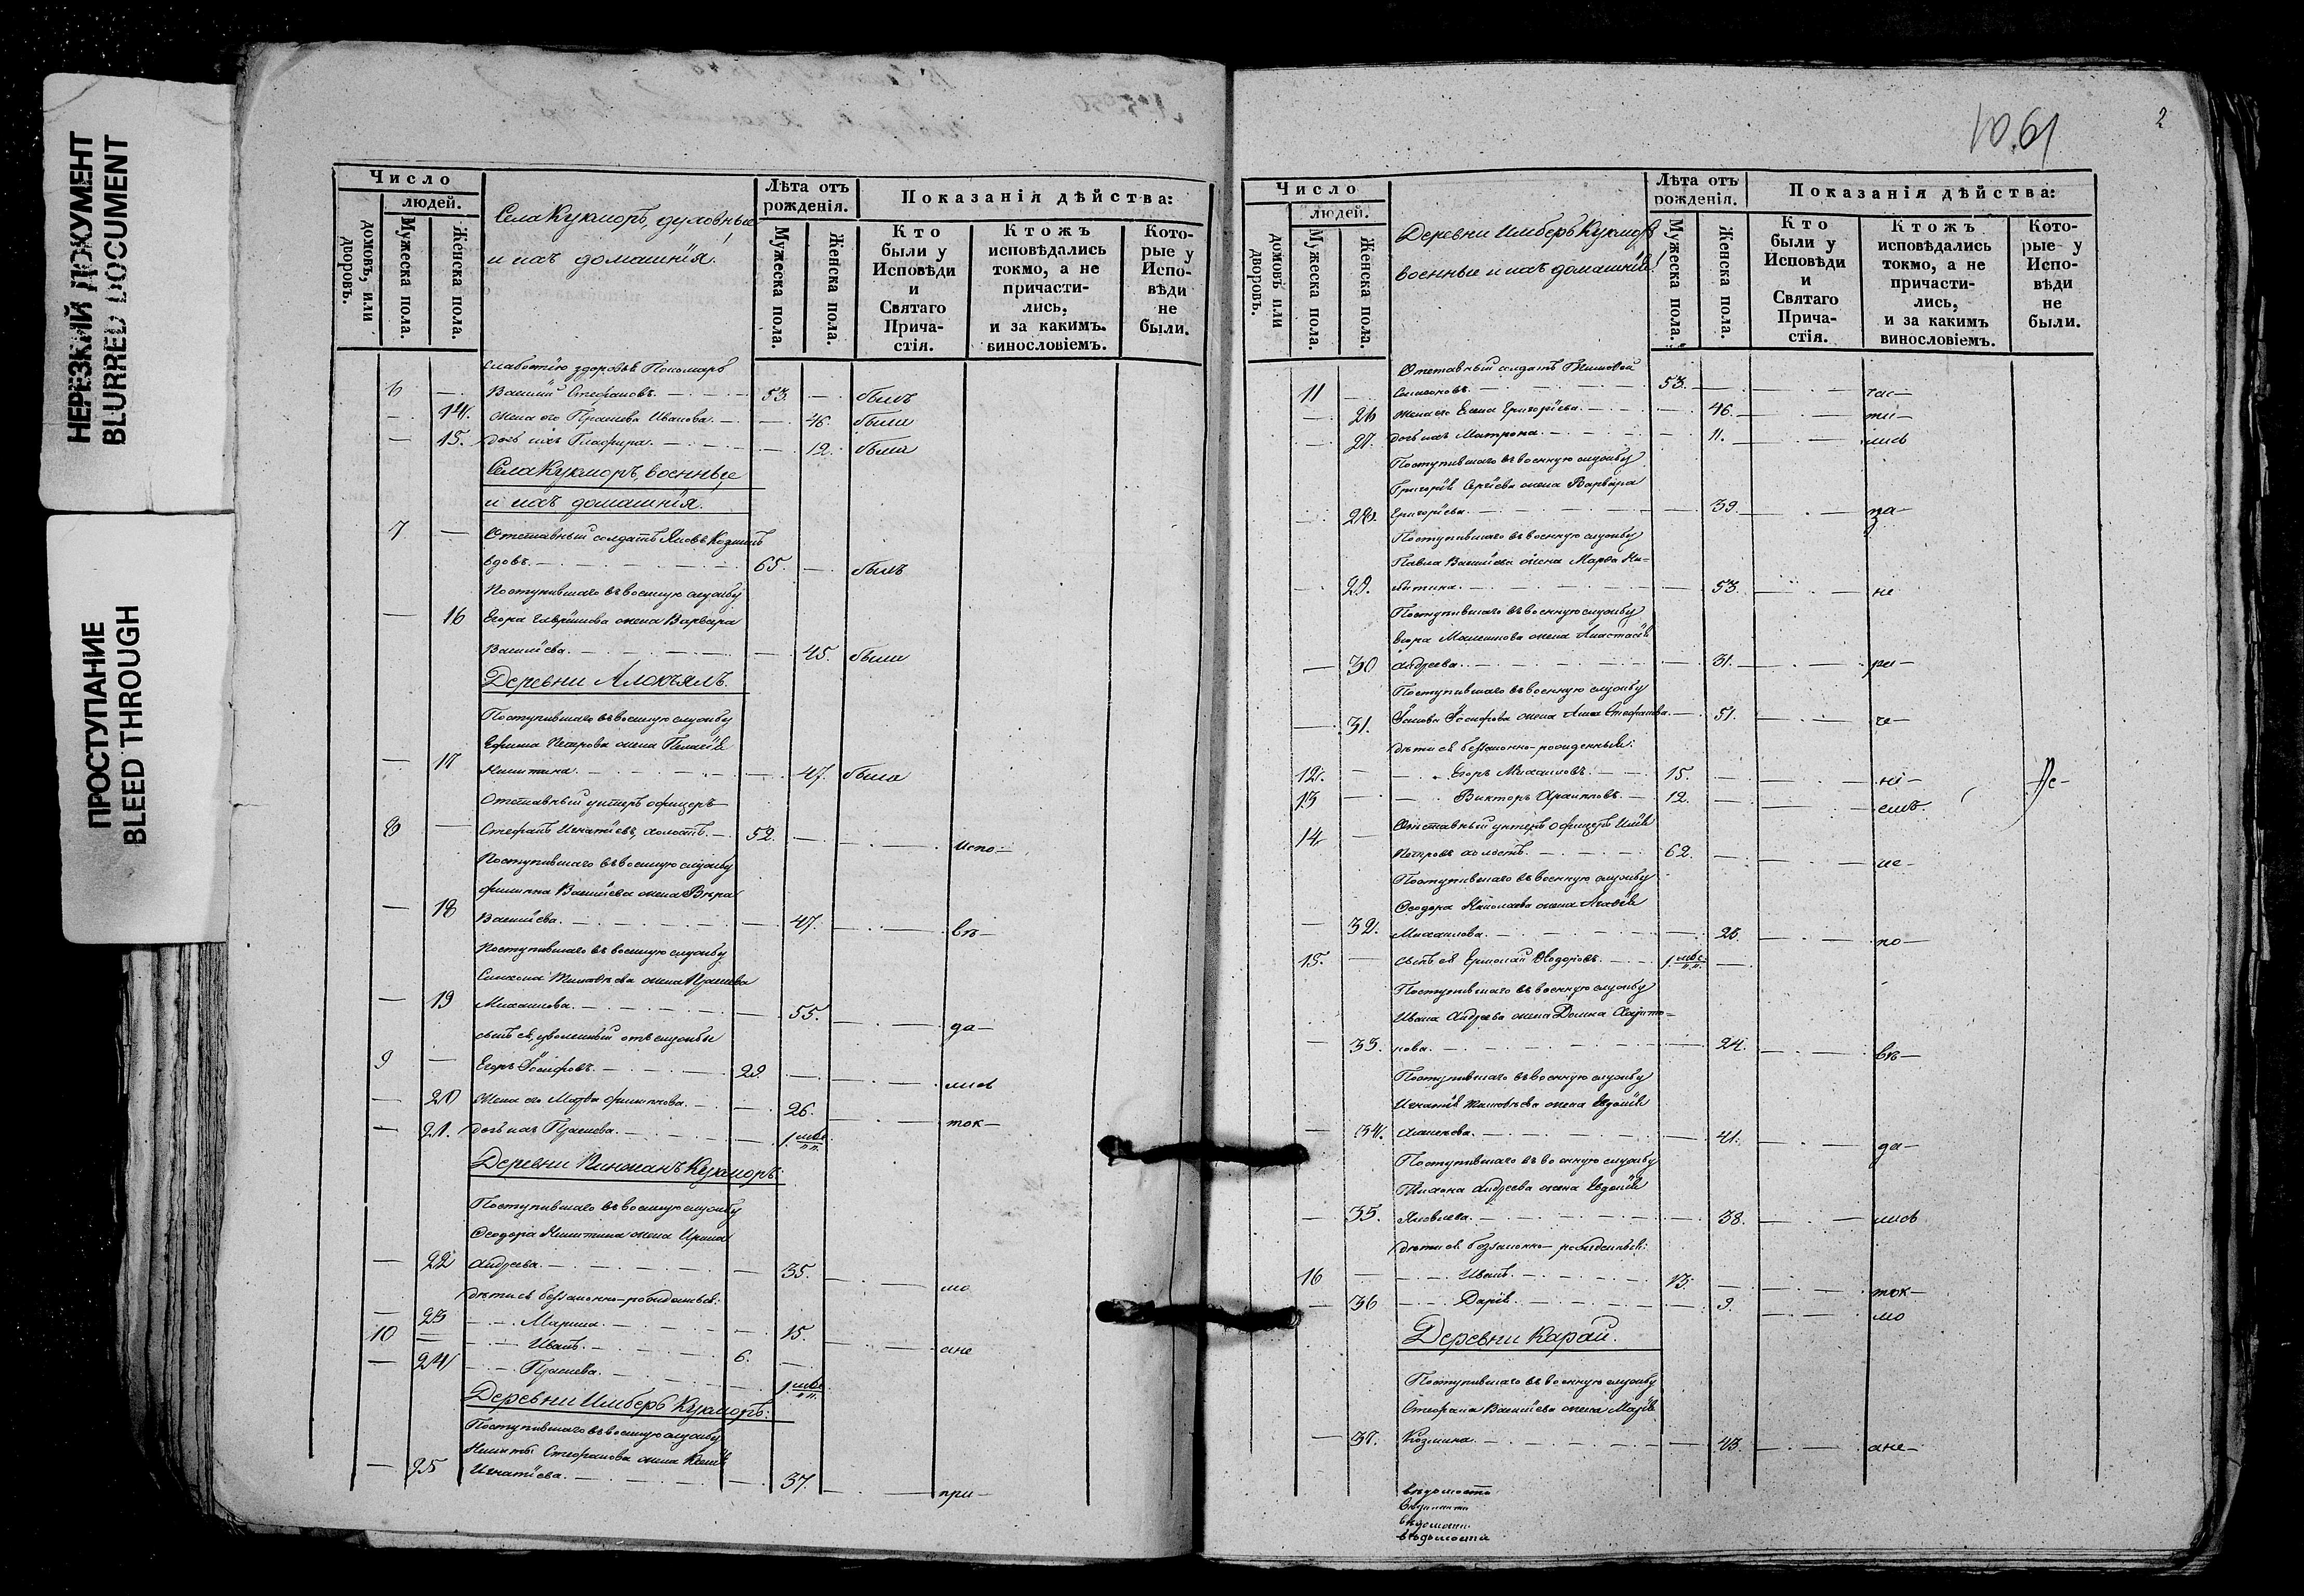 НЕРЕЗКИЙ ДОКУМЕНТ
BLURRED DOCUMENT
ПРОСТУПАНИЕ
BLEED THROUGH
Число
людей.
домовъ, или дворовъ.
Мужеска пола.
Женска пола.
Села Кукморъ, духовные
и ихъ домашнія:
Лѣта отъ рожденія.
Мужеска пола.
Женска пола.
Показанія дѣйства:
Кто были у Исповѣди и Святаго Прича-стія.
Ктожъ исповѣдались токмо, а не причасти-лись, и за какимъ винословіемъ.
Кото-рые у Испо-вѣди не были.
слабостію здоровья Пономарь
6 — Василий Стефановъ. 53. — былъ
— 14. жена его Прасковья Иванова. — 46. была
— 15. дочь ихъ Глафира. — 12. была
Села Кукморъ, военные
и ихъ домашнія.
7 — Отставный солдатъ Яковъ Козминъ
вдовъ. 65. — былъ
Поступившаго въ военную службу
— 16 Егора Гаврилова жена Варвара
Васильева. — 45. была
Деревни
Поступившаго въ военную службу
Ефима Петрова жена Пелагія
— 17 Никитина. — 47. была
Отставный унтеръ офицеръ
8 — Стефанъ Игнатьевъ, холостъ. 52. — испо-
Поступившаго въ военную службу
Филиппа Васильева жена Вѣра
— 18 Васильева. — 47. вѣ-
Поступившаго въ военную службу
Симеона Тимофѣева жена Прасковья
— 19 Михаилова. — 55. да-
сынъ ея, уволенный отъ службы
9 — Егоръ Іосифовъ. 29. — лись
— 20 Жена его Марфа Филиппова. — 26. ток-
— 21. дочь ихъ Прасковья. — 1 мѣс.
Деревни Пинжанъ Кукморъ:
Поступившаго въ военную службу
Ѳеодора Никитина жена Ирина
— 22 Андреева. — 35. мо
дѣти ея беззаконно-рожденныя:
— 23 Марина. — 15.
10 — Иванъ. 6. — ане
— 24 Прасковья. — 1 мѣс.
Деревни Имберь Кукморъ:
Поступившаго въ военную службу
Никиты Стефанова жена Ксенія
— 25 Игнатіева. — 37. при-
10.61
2
Число
людей.
домовъ или дворовъ.
Мужеска пола.
Женска пола.
Деревни Имберь Кукморъ
военные и ихъ домашніе:
Лѣта отъ рожденія.
Мужеска пола.
Женска пола.
Показанія дѣйства:
Кто были у Исповѣди и Святаго Прича-стія.
Ктожъ исповѣдались токмо, а не причасти-лись, и за какимъ винословіемъ.
Кото-рые у Испо-вѣди не были.
Отставный солдатъ Тимофей
11 — Симеоновъ. 53. — час-
— 26 жена его Елена Григорьева. — 46. ти-
— 27. дочь ихъ Матрона. — 11. лись
Поступившаго въ военную службу
Григорія Сергѣева жена Варвара
— 28. Григорьева. — 39. за-
Поступившаго въ военную службу
Павла Васильева жена Марфа Ни-
— 29. китина. — 53. не
Поступившаго въ военную службу
Егора жена Анастасія
— 30 Андреева. — 31. ра-
Поступившаго въ военную службу
— 31. Іакова Іосифова жена Анна Стефанова. — 51. че-
дѣти ея беззаконно-рожденныя:
12. — Егоръ Михаиловъ. 15. — ні-
13 — Викторъ 12. — емъ.
14. — Отставный унтеръ офицеръ Илія
Петровъ холостъ. 62. — ис-
Поступившаго въ военную службу
Ѳеодора Николаева жена Агафія
— 32. Михаилова. — 28. по-
15. — сынъ ея Ермолай Ѳеодоровъ. 1 мѣс. —
Поступившаго въ военную службу
Ивана Андреева жена Домна Харито-
— 33. нова. — 24. вѣ-
Поступившаго въ военную службу
Игнатія Тимофѣева жена Евдокія
— 34. Алексѣева. — 41. да-
Поступившаго въ военную службу
Тихона Андреева жена Евдокія
— 35. Яковлева. — 38. лись
дѣти ея беззаконно-рожденныя:
16 — Иванъ. 13. — ток-
— 36 Дарія. — 9. мо
Деревни Карай.
Поступившаго въ военную службу
Стефана Васильева жена Марія
— 37. Козмина. — 43. ане-
вѣдомость
вѣдомости
вѣдомости